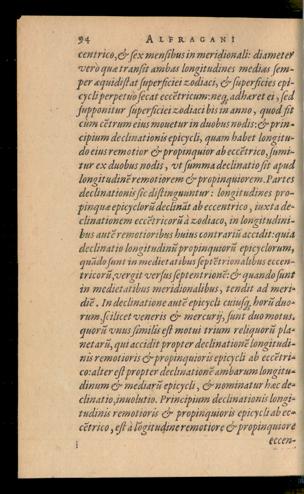 94 ALFRAGANI
centrico, & sex mensibus in meridionali: diameter
vero quæ transit ambas longitudines medias sem-
per æquidistat superficiei zodiaci, & superficies epi-
cycli perpetuò secat eccẽtricum: neq; adhæret ei, sed
supponitur superficiei zodiaci bis in anno, quod fit
cum cẽtrum eius mouetur in duobus nodis: & prin-
cipium declinationis epicycli, quam habet longitu-
do eius remotior & propinquior ab eccẽtrico, sumi-
tur ex duobus nodis, vt summa declinatio sit apud
longitudinẽ remotiorem & propinquiorem. Partes
declinationis sic distinguuntur: longitudines pro-
pinquæ epicyclorũ declinãt ab eccentrico, iuxta de-
clinationem eccẽtricorũ à zodiaco, in longitudini-
bus autẽ remotioribus huius contrariũ accidit: quia
declinatio longitudinũ propinquiorũ epicyclorum,
quãdo sunt in medietatibus septẽtrionalibus eccen-
tricorũ, vergit versus septentrionẽ: & quando sunt
in medietatibus meridionalibus, tendit ad meri-
diẽ. In declinatione autẽ epicycli cuiusq; horũ duo-
rum, scilicet veneris & mercurij, sunt duo motus,
quorũ vnus similis est motui trium reliquorũ pla-
netarũ, qui accidit propter declinationẽ longitudi-
nis remotioris & propinquioris epicycli ab eccẽtri-
co: alter est propter declinationẽ ambarum longitu-
dinum & mediarũ epicycli, & nominatur hæc de-
clinatio, inuolutio. Principium declinationis longi-
tudinis remotioris & propinquioris epicycli ab ec-
cẽtrico, est à lõgitudine remotiore & propinquiore
eccen-